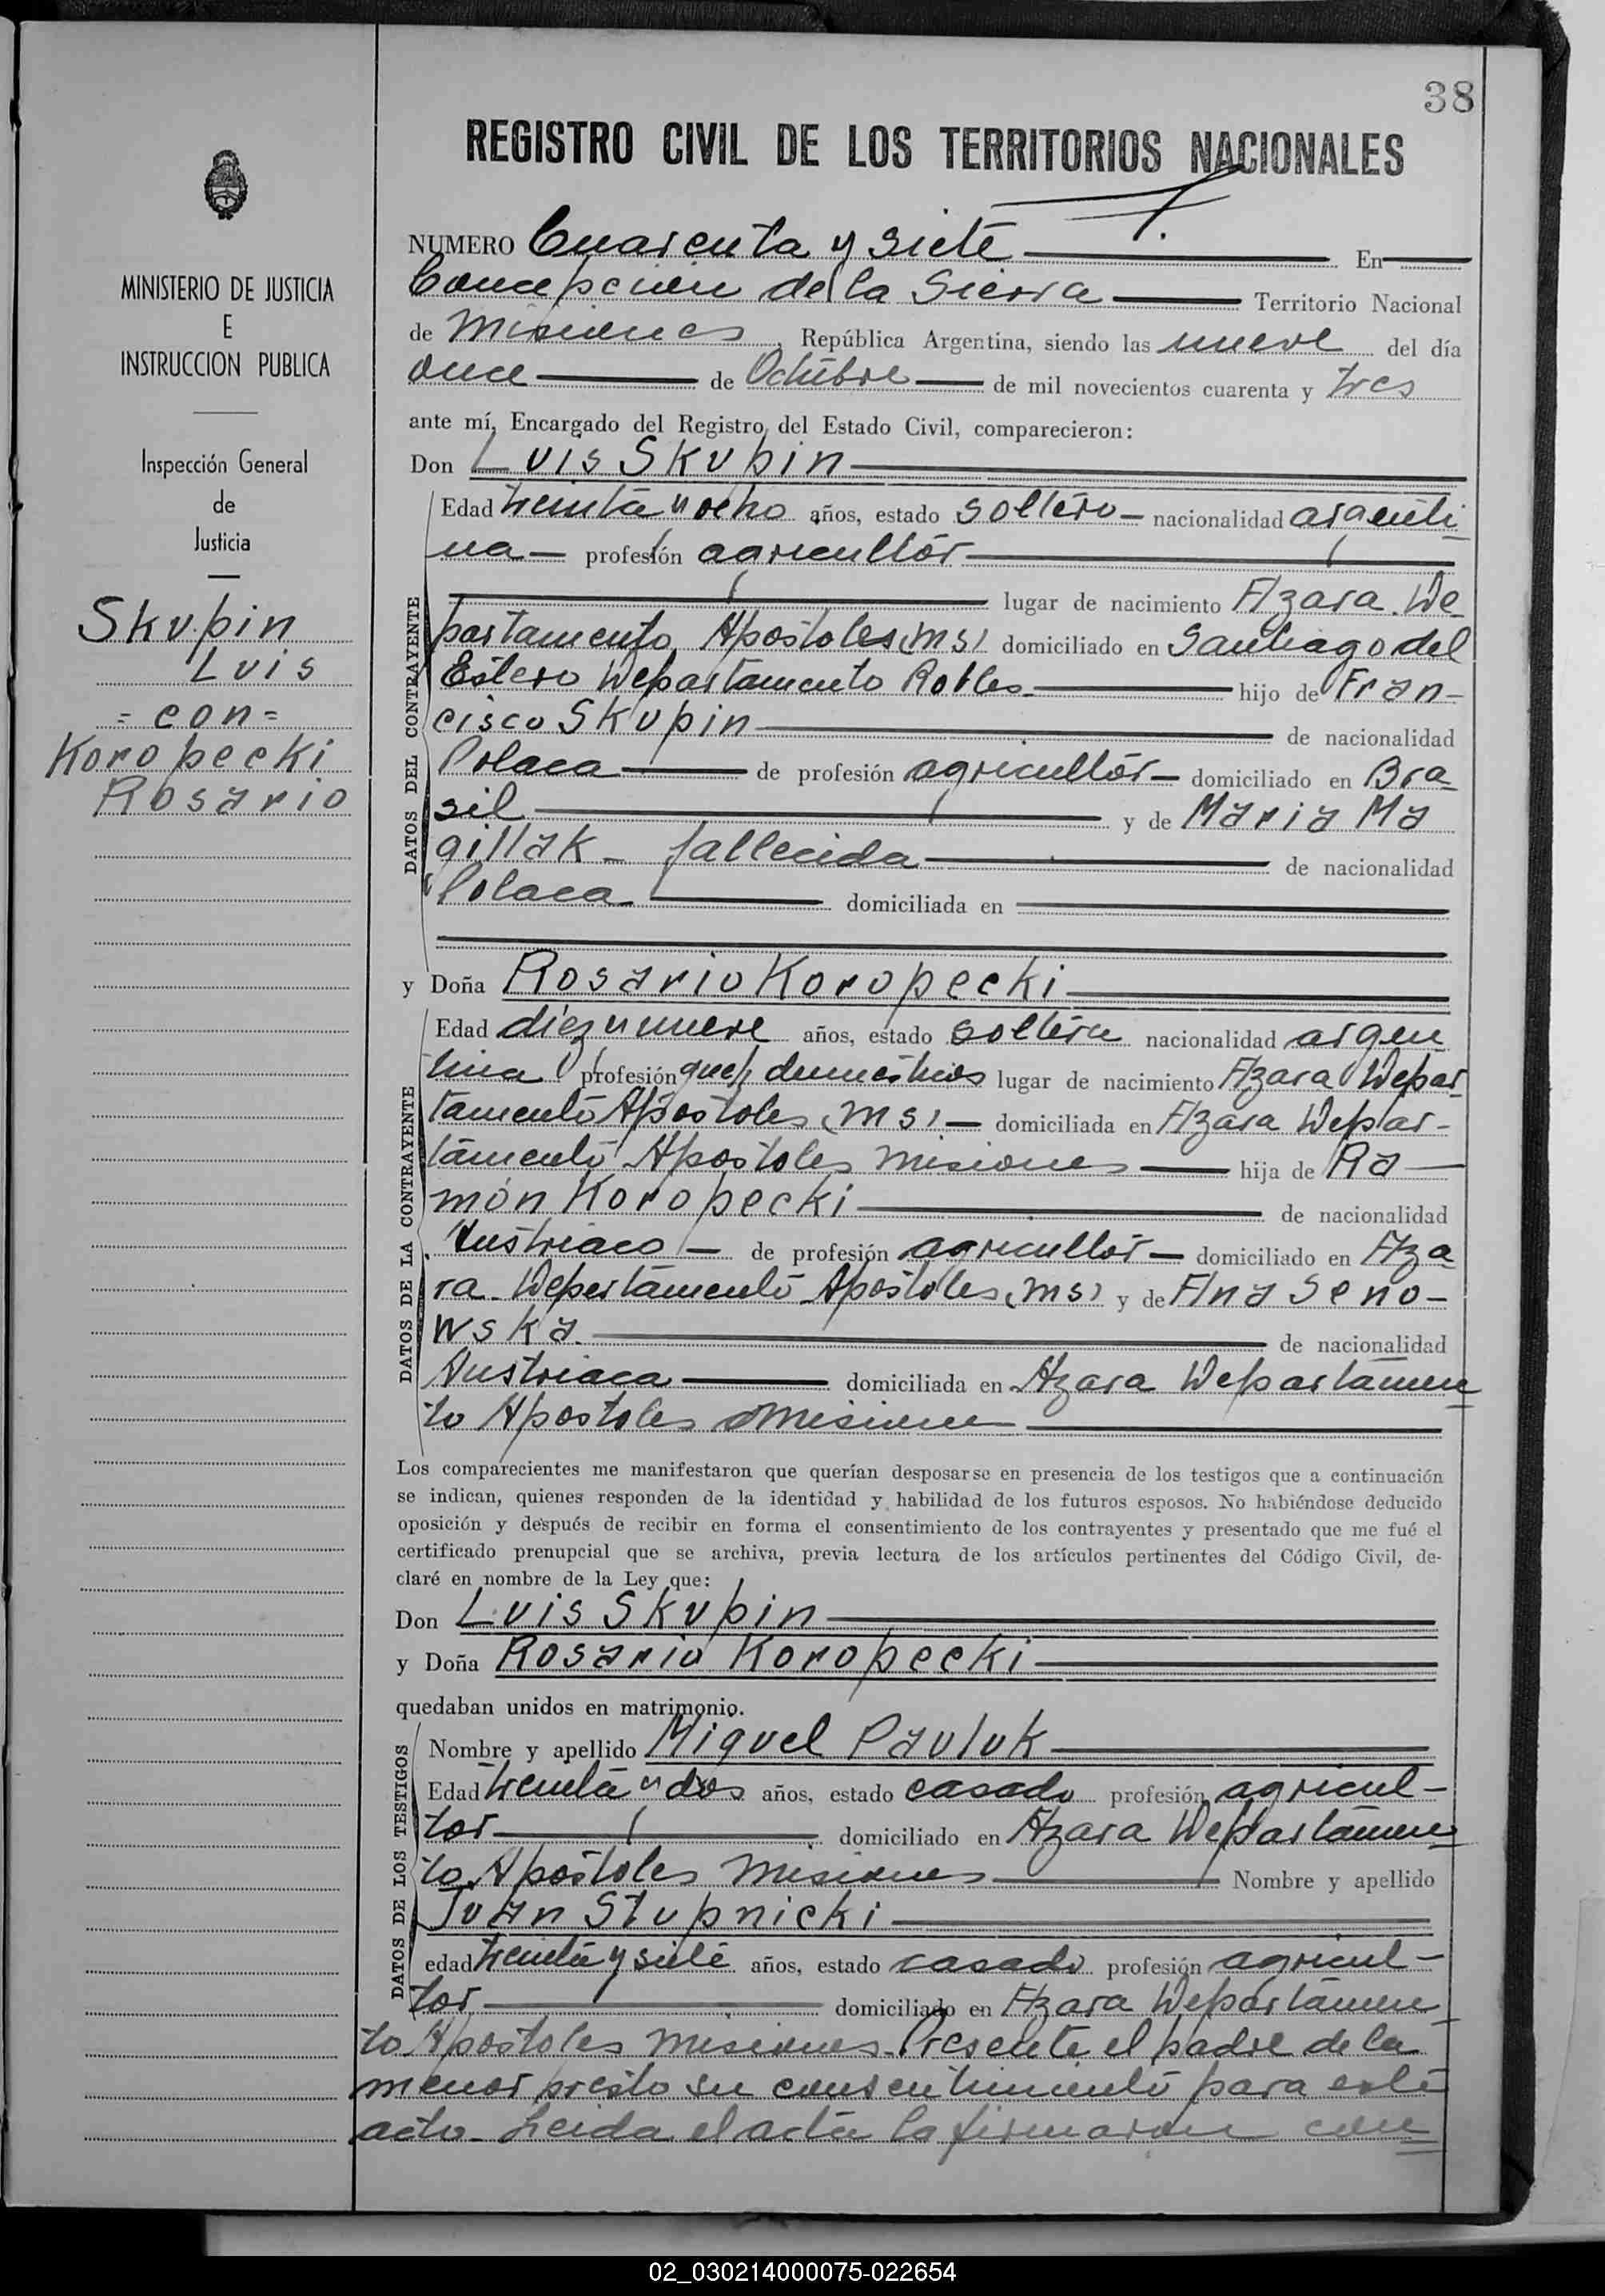 38
REGISTRO CIVIL DE LOS TERRITORIOS NACIONALES
MINISTERIO DE JUSTICIA
E
INSTRUCCION PUBLICA
Inspección General
de
Justicia
Skupin
Luis
= con =
Koropecki
Rosario
NUMERO Cuarenta y siete En
Concepción de la Sierra Territorio Nacional
de Misiones, República Argentina, siendo las nueve del día
once de Octubre de mil novecientos cuarenta y tres
ante mí, Encargado del Registro del Estado Civil, comparecieron:
Don Luis Skupin
DATOS DEL CONTRAYENTE
Edad treinta y ocho años, estado soltero nacionalidad argenti
na profesión agricultor
lugar de nacimiento Azara. De
partamento Apostoles (Ms) domiciliado en Santiago del
Estero Departamento Robles hijo de Fran-
cisco Skupin de nacionalidad
Polaca de profesión agricultor domiciliado en Bra
sil y de Maria Ma
gillak - fallecida de nacionalidad
Polaca domiciliada en
y Doña Rosario Koropecki
DATOS DE LA CONTRAYENTE
Edad diez y nueve años, estado soltera nacionalidad argen
tina profesión queh domesticos lugar de nacimiento Azara Depar
tamento Apostoles (Ms) domiciliada en Azara Depar-
tamento Apostoles Misiones hija de Ra
món Koropecki de nacionalidad
Austriaco de profesión agricultor domiciliado en Aza
ra. Departamento Apostoles (Ms) y de Ana Seno-
wska. de nacionalidad
Austriaca domiciliada en Azara Departamen
to Apostoles Misiones
Los comparecientes me manifestaron que querían desposarse en presencia de los testigos que a continuación
se indican, quienes responden de la identidad y habilidad de los futuros esposos. No habiéndose deducido
oposición y después de recibir en forma el consentimiento de los contrayentes y presentado que me fué el
certificado prenupcial que se archiva, previa lectura de los artículos pertinentes del Código Civil, de-
claré en nombre de la Ley que:
Don Luis Skupin
y Doña Rosario Koropecki
quedaban unidos en matrimonio.
DATOS DE LOS TESTIGOS
Nombre y apellido Miguel Pauluk
Edad treinta y dos años, estado casado profesión agricul-
tor domiciliado en Azara Departamen
to Apostoles Misiones Nombre y apellido
Juan Stupnicki
edad treinta y siete años, estado casado profesión agricul-
tor domiciliado en Azara Departamen
to Apostoles Misiones. Presente el padre de la
menor presto su consentimiento para este
acto. Leida el acta la firmaron con
02_030214000075-022654